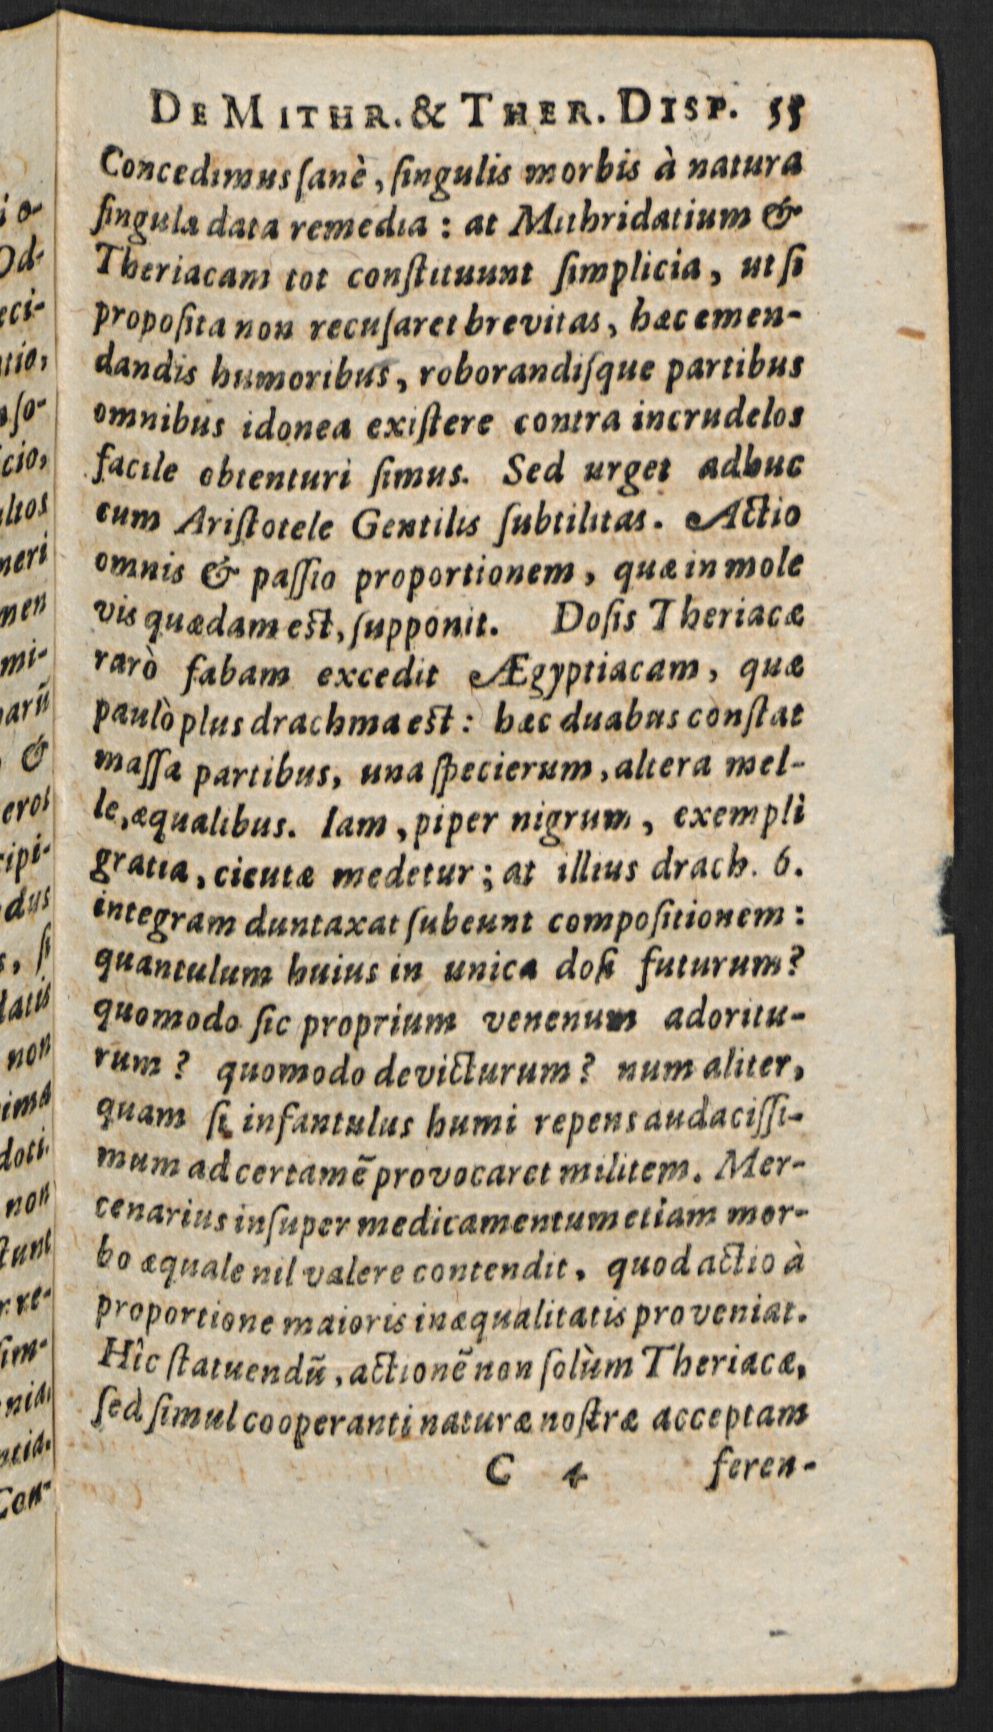 DE MITHR. & THER. DISP. 55
Concedimus ſanè, ſingulis morbis à natura
ſingula data remedia : at Mithridatium &
Theriacam tot conſtituunt ſimplicia, ut ſi
propoſita non recuſaret brevitas, hæc emen-
dandis humoribus, roborandiſque partibus
omnibus idonea exiſtere contra incrudelos
facile obtenturi ſimus. Sed urget adhuc
cum Ariſtotele Gentilis ſubtilitas. Actio
omnis & paſſio proportionem, quæ in mole
vis quædam eſt, ſupponit. Doſis Theriacæ
rarò fabam excedit Ægyptiacam, quæ
paulò plus drachma eſt : hæc duabus conſtat
maſſa partibus, una ſpecierum, altera mel-
le, æqualibus. Iam, piper nigrum, exempli
gratia, cicutæ medetur ; at illius drach. 6.
integram duntaxat ſubeunt compoſitionem :
quantulum huius in unica doſi futurum?
quomodo ſic proprium venenum adoritu-
rum ? quomodo devicturum ? num aliter,
quam ſi infantulus humi repens audaciſſi-
mum ad certamẽ provocaret militem. Mer-
cenarius inſuper medicamentum etiam mor-
bo æquale nil valere contendit, quod actio à
proportione maioris inæqualitatis proveniat.
Hîc ſtatuendũ, actionẽ non ſolùm Theriacæ,
ſed ſimul cooperanti naturæ noſtræ acceptam
C 4 feren-
i o-
Od-
eci-
tio,
ſo-
cio,
ultos
neri
men
mi-
arũ
&
eros
cipi-
dus
s, ſi
latis
non
ima
doti.
non
ſtunt
re-
ſim-
nia,
Con-